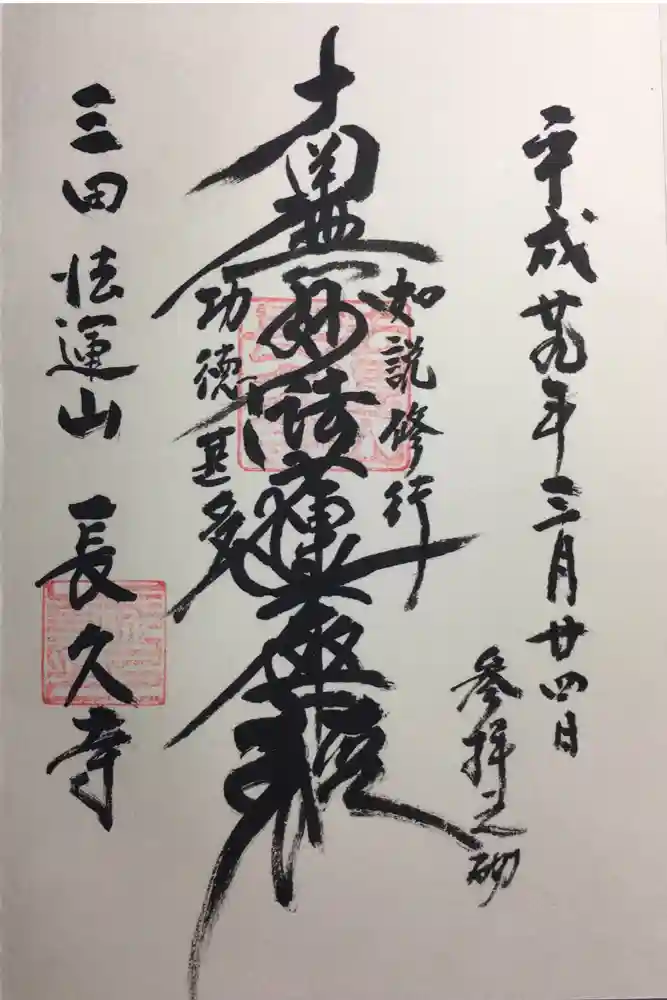 平成廿九年三月廿四日
参拝之砌
如説修行
南無妙法蓮華経
功徳甚多
三田 法運山 長久寺